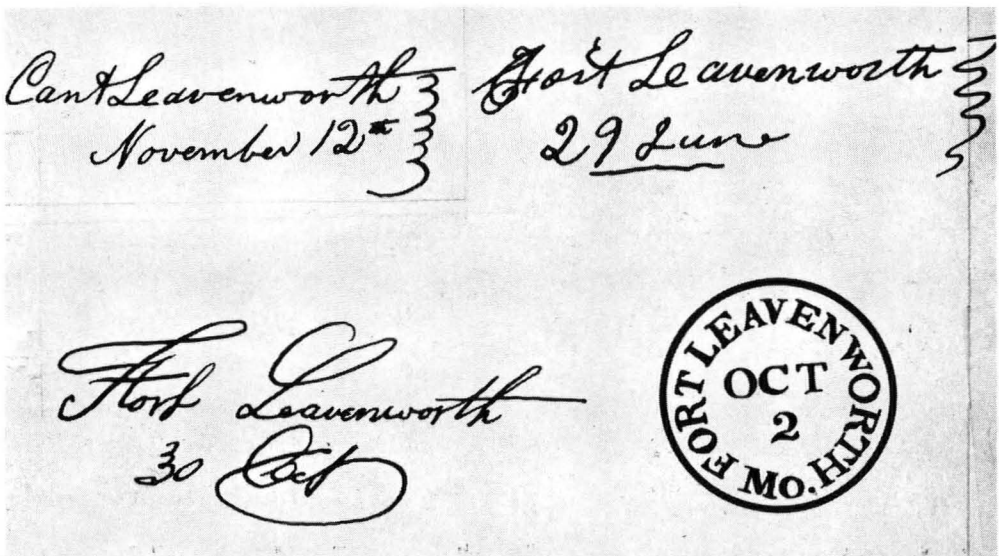 Cant Leavenworth
November 12th
Fort Leavenworth
29 June
Fort Leavenworth
30 Oct
FORT LEAVENWORTH
MO.
OCT
2